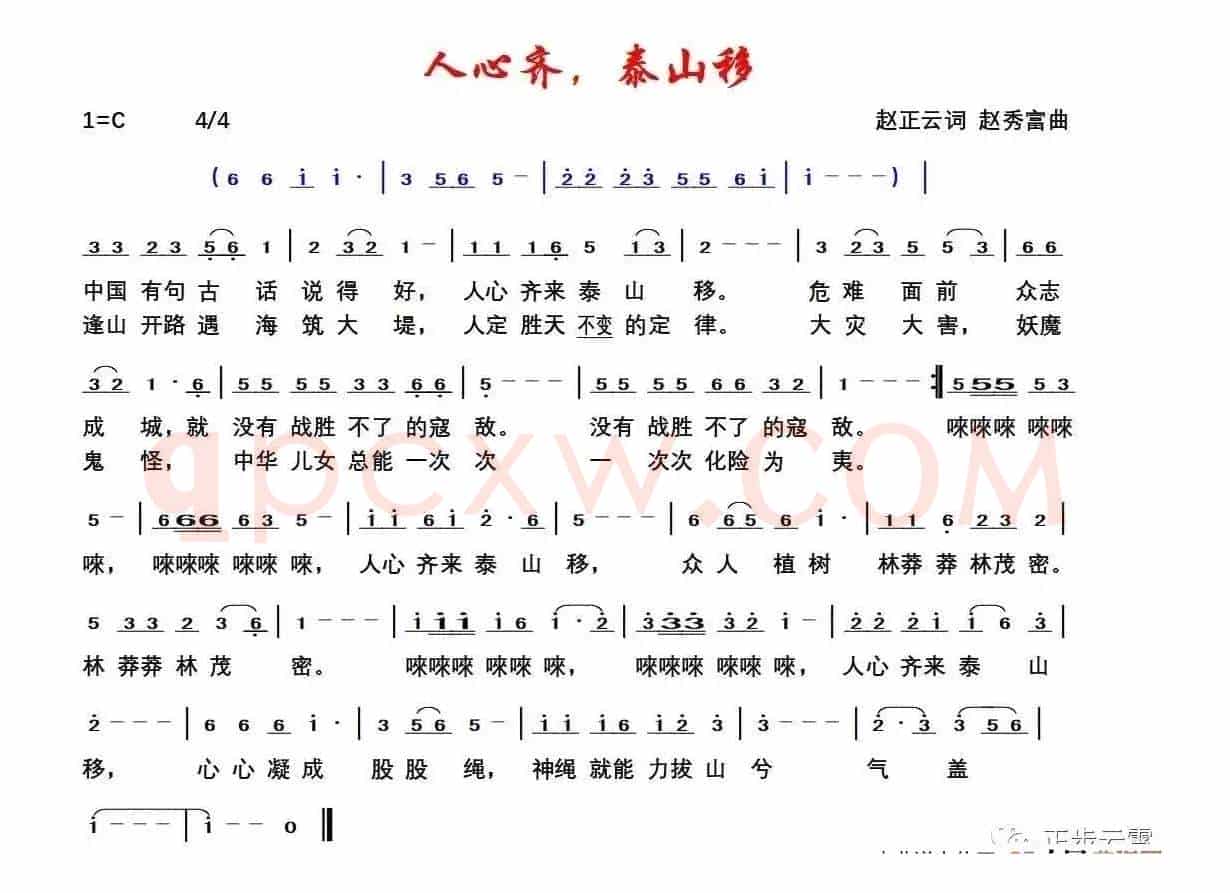 人心齐，泰山移
1=C 4/4 赵正云词 赵秀富曲
(6 6 i i · | 3 56 5 - | 22 23 55 6i | i - - - ) |
33 23 56 1 | 2 32 1 - | 11 16 5 13 | 2 - - - | 3 23 5 53 | 66
中国 有句 古 话 说 得 好， 人心 齐来 泰 山 移。 危 难 面 前 众志
逢山 开路 遇 海 筑 大 堤， 人定 胜天 不变 的定 律。 大 灾 大 害， 妖魔
32 1 · 6 | 55 55 33 66 | 5 - - - | 55 55 66 32 | 1 - - - :| 555 53
成 城，就 没有 战胜 不了 的寇 敌。 没有 战胜 不了 的寇 敌。 唻唻唻 唻唻
鬼 怪， 中华 儿女 总能 一次 次 一 次次 化险 为 夷。
5 - | 666 63 5 - | ii 6i 2 · 6 | 5 - - - | 6 65 6 i · | 11 6 23 2 |
唻， 唻唻唻 唻唻 唻， 人心 齐来 泰 山 移， 众 人 植 树 林莽 莽 林茂 密。
5 33 2 3 6 | 1 - - - | iii i6 i · 2 | 333 32 i - | 22 2i i6 3 |
林 莽莽 林 茂 密。 唻唻唻 唻唻 唻， 唻唻唻 唻唻 唻， 人心 齐来 泰 山
2 - - - | 6 6 6 i · | 3 56 5 - | ii i6 i2 3 | 3 - - - | 2 · 3 3 56 |
移， 心 心 凝 成 股 股 绳， 神绳 就能 力拔 山 兮 气 盖
i - - - | i - - o ||
qpcxw.COM